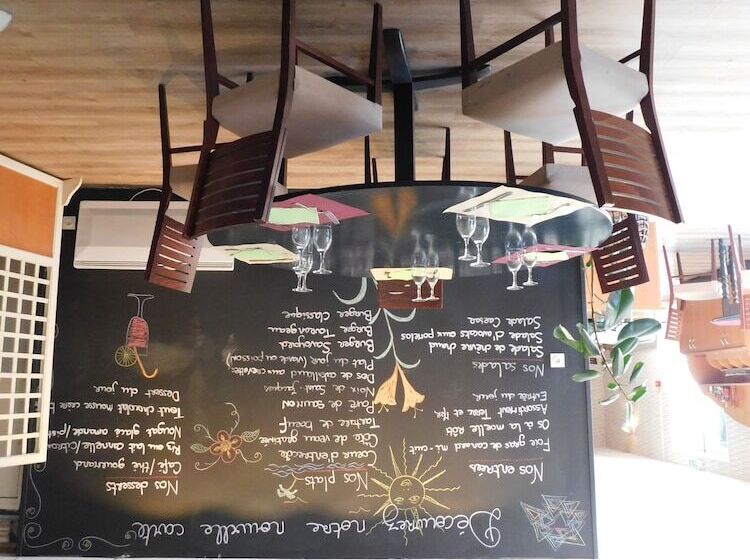 Découvrez notre nouvelle carte
Nos entrées
Foie gras de canard mi-cuit
Os à la moelle rôti
Assortiment Terre et Mer
Entrée du jour
Nos salades
Salade de chèvre chaud
Salade d'avocats aux
Salade Caesar
Nos plats
Coeur d'entrecôte
Côte de veau
Tartare de boeuf
Pavé de
Noix de Saint-Jacques
Dos de cabillaud aux crevettes
Plat du jour (Viande ou poisson)
Burger Savoyard
Burger
Burger Classique
Nos desserts
Café/thé gourmand
Riz au lait cannelle/
Nougat glacé amande/
Tout chocolat mousse
Dessert du jour